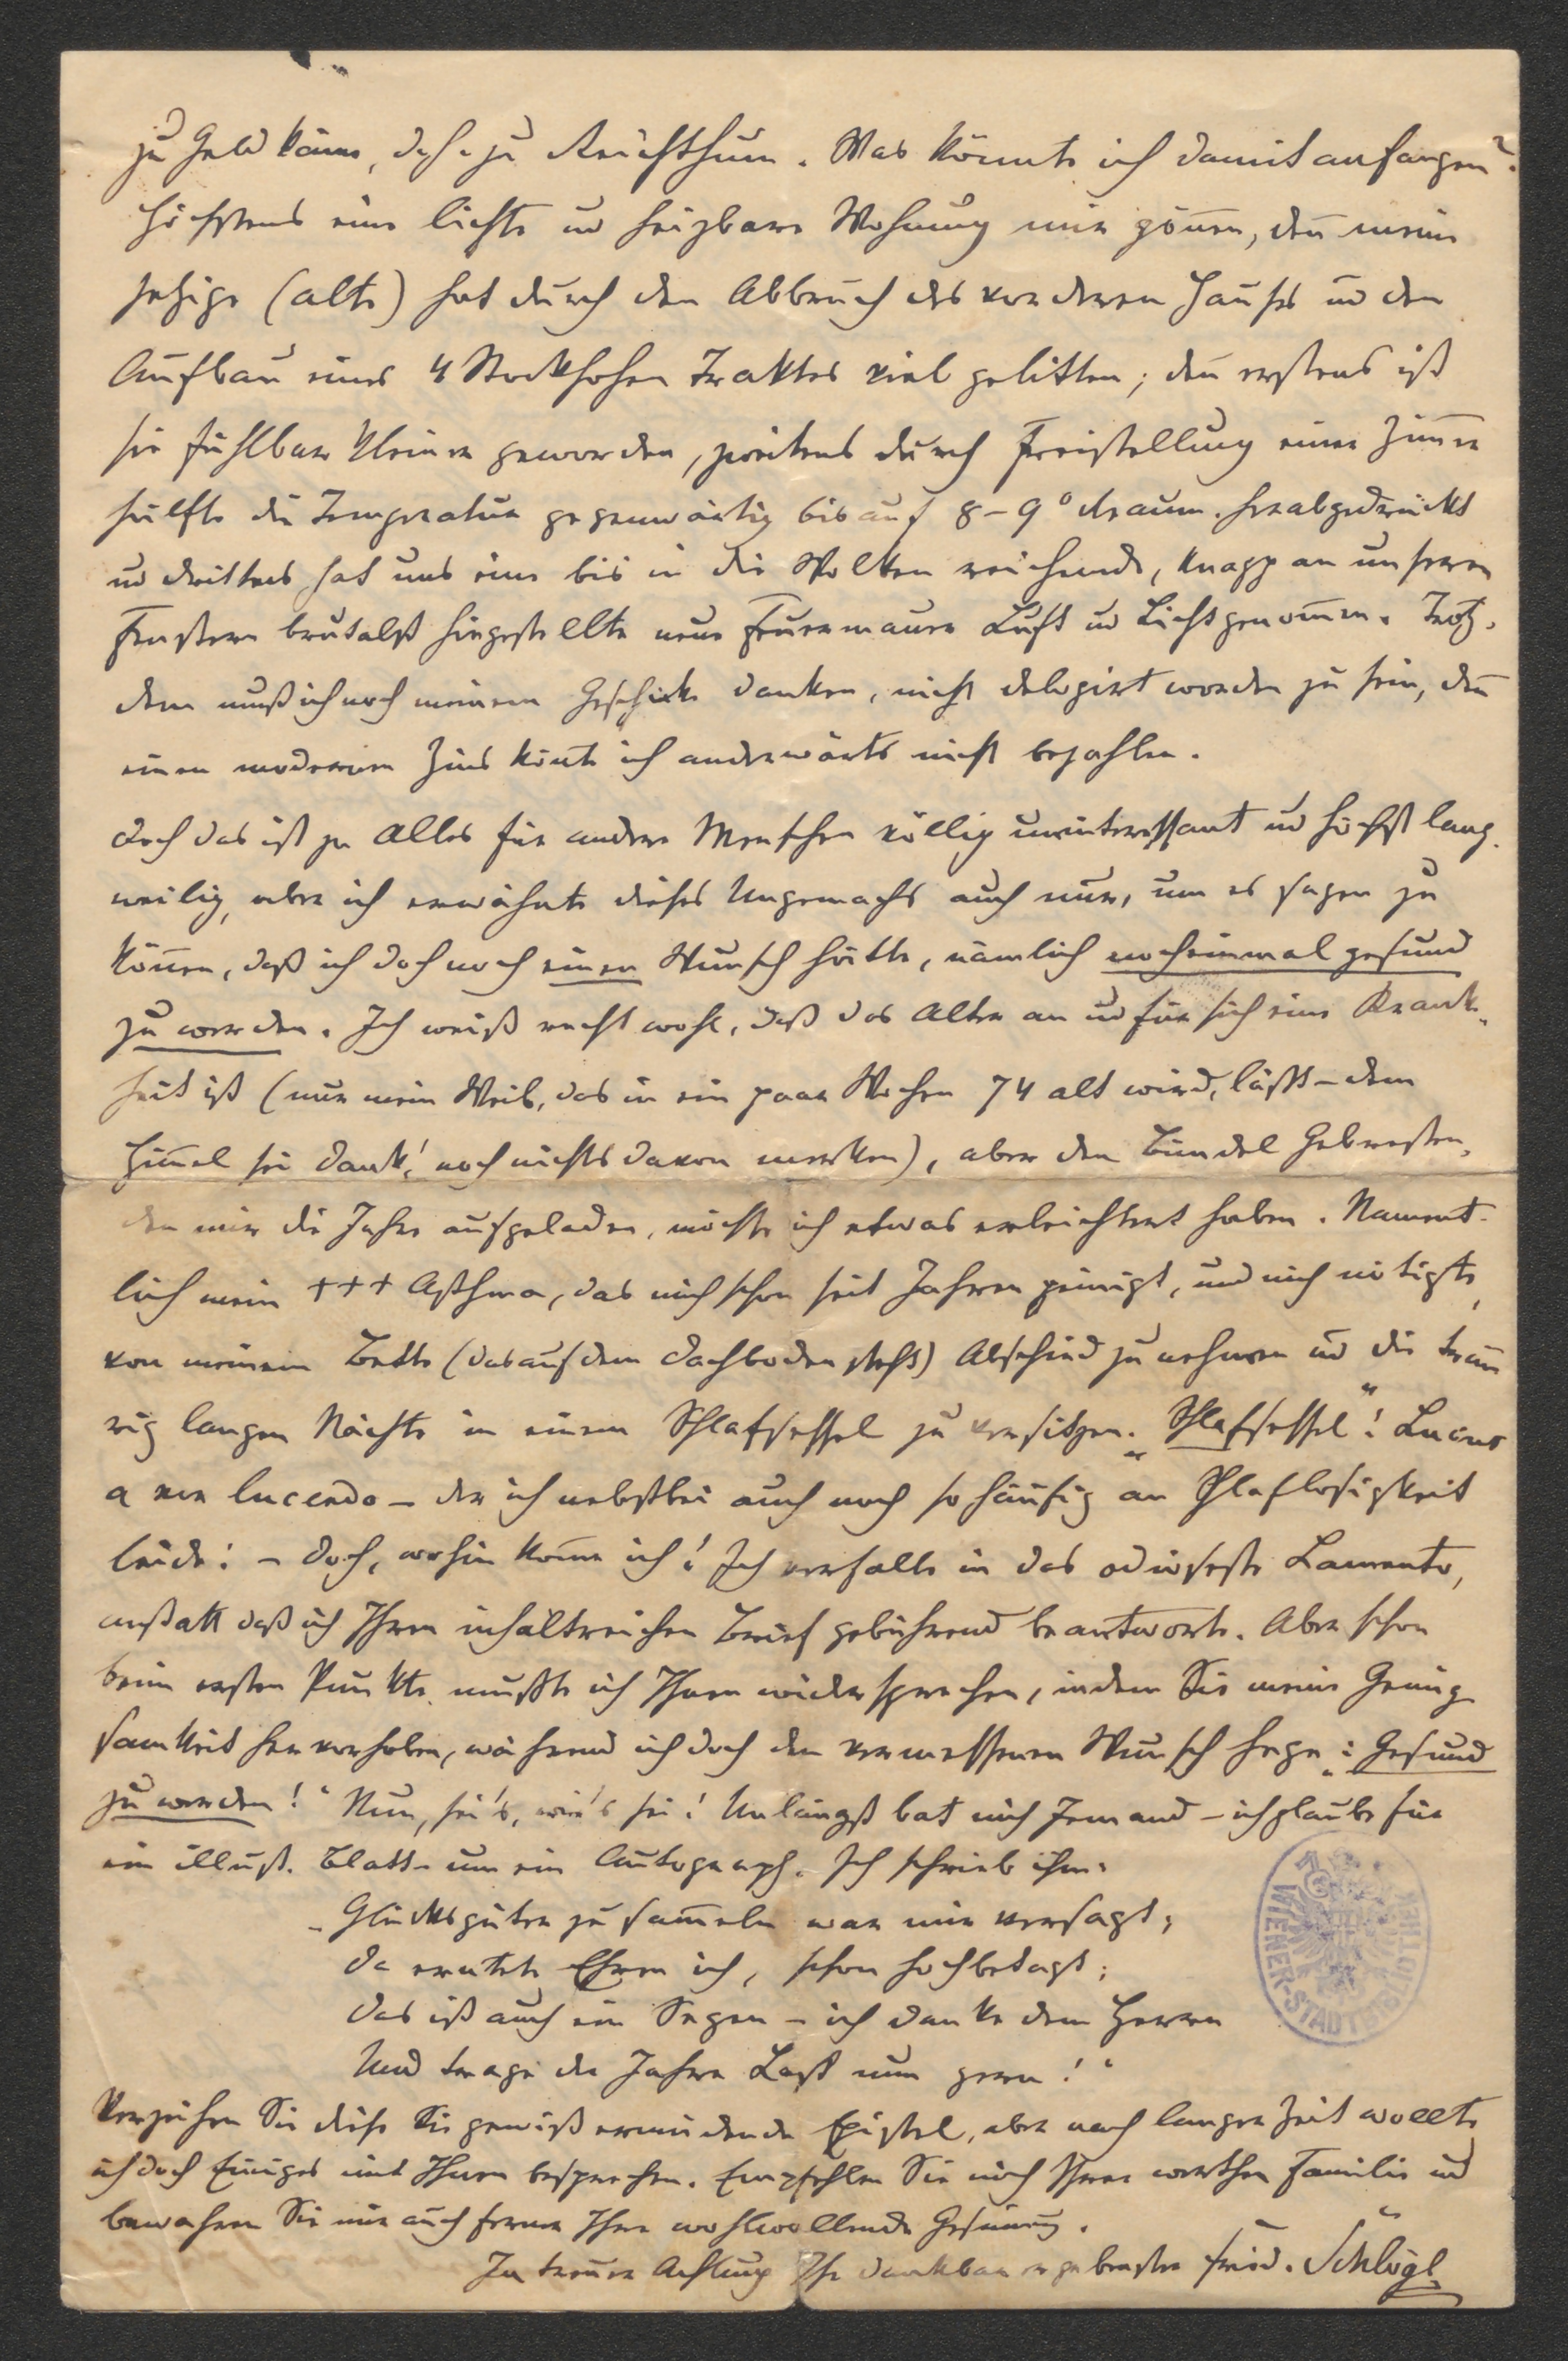 zu Geld käme, d. h. zu Reichthum. Was könnte ich damit anfangen?
Höchstens eine lichte und heizbare Wohnung mir gön̄en, den̄ meine
jetzige (alte) hat durch den Abbruch des vorderen Hauses ūd den
Aufbau eines 4 Stockhohen Traktes viel gelitten; den̄ erstens ist
sie fühlbar kleiner geworden, zweitens durch Freistellung einer Zim̄er
hälfte die Temperatur gegenwärtig bis auf 8–9° Reaum. herabgedrückt
ud drittens hat uns eine bis in die Wolken reichende, knapp an unseren
Fenstern brutalst hingestellte neue Feuermauer Luft ud Licht genom̄en. Trotz-
dem muß ich noch meinem Geschicke danken, nicht delogirt worden zu sein, den̄
einen modernen Zins kön̄te ich anderwärts nicht bezahlen.
Doch das ist ja Alles für andere Menschen völlig uninteressant ud höchst lang-
weilig, aber ich erwähnte dieses Ungemachs auch nur, um es sagen zu
kön̄en, daß ich doch noch einen Wunsch hätte, nämlich nocheinmal gesund
zu werden. Ich weiß recht wohl, daß das Alter an ud für sich eine Krank-
heit ist (nur mein Weib, das in ein paar Wochen 74 alt wird, läßt – dem
Him̄el sei Dank! noch nichts davon merken), aber den Bündel Gebresten,
den mir die Jahre aufgeladen, möchte ich etwas erleichtert haben. Nament-
lich mein +++ Asthma, das mich schon seit Jahren peinigt, und mich nötigte,
von meinem Bette (das auf dem Dachboden steht) Abschied zu nehmen ūd die trau
rig langen Nächte in einem Schlafsessel zu versitzen. „Schlafsessel“! Lucus
a non lucendo – der ich nebstbei auch noch so häufig an Schlaflosigkeit
leide! – Doch, wohin kom̄e ich! Ich verfalle in das odioseste Lamento,
anstatt daß ich Ihren inhaltreichen Brief gebührend beantworte. Aber schon
beim ersten Punkte mußte ich Ihnen widersprechen, indem Sie meine Genüg-
samkeit hervorhoben, während ich doch den vermessenen Wunsch hege: „Gesund
zu werden!“ Nun, sei's, wie's sei! Unlängst bat mich Jemand – ich glaube für
ein illust. Blatt – um ein Autograph. Ich schrieb ihm:
„Glücksgüter zu sam̄eln war mir versagt;
Da erntete Ehren ich, schon hochbetagt;
Das ist auch ein Segen – ich danke dem Herren
Und trage der Jahre Last nun gern!“
Verzeihen Sie diese Sie gewiß ermüdende Epistel, aber nach langer Zeit wollte
ich doch Einiges mit Ihnen besprechen. Empfehlen Sie mich Ihrer werthen Familie ud
bewahren Sie mir auch ferner Ihre wohlwollende Gesin̄ung.
In treuer Achtung Ihr dankbar ergebenster Fried. Schlögl
WIENER-STADTBIBLIOTHEK